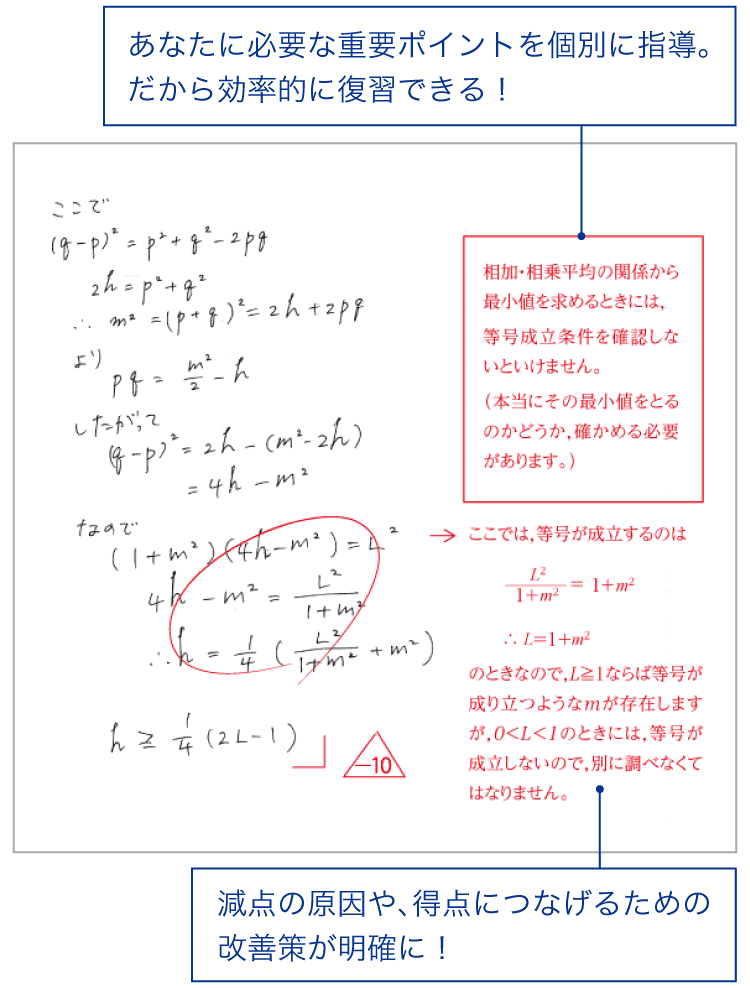 あなたに必要な重要ポイントを個別に指導。
だから効率的に復習できる！
ここで
(q-p)² = p²+q²-2pq
2h = p²+q²
∴ m² = (p+q)² = 2h+2pq
より
pq = m²/2 - h
したがって
(q-p)² = 2h-(m²-2h)
= 4h-m²
なので
(1+m²)(4h-m²) = L²
4h-m² = L²/1+m²
∴ h = 1/4 (L²/1+m² + m²)
h ≧ 1/4 (2L-1)
-10
相加・相乗平均の関係から
最小値を求めるときには，
等号成立条件を確認しな
いといけません。
（本当にその最小値をとる
のかどうか，確かめる必要
があります。）
→ ここでは，等号が成立するのは
L²/1+m² = 1+m²
∴ L=1+m²
のときなので，L≧1ならば等号が
成り立つようなmが存在します
が，0<L<1のときには，等号が
成立しないので，別に調べなくて
はなりません。
減点の原因や、得点につなげるための
改善策が明確に！